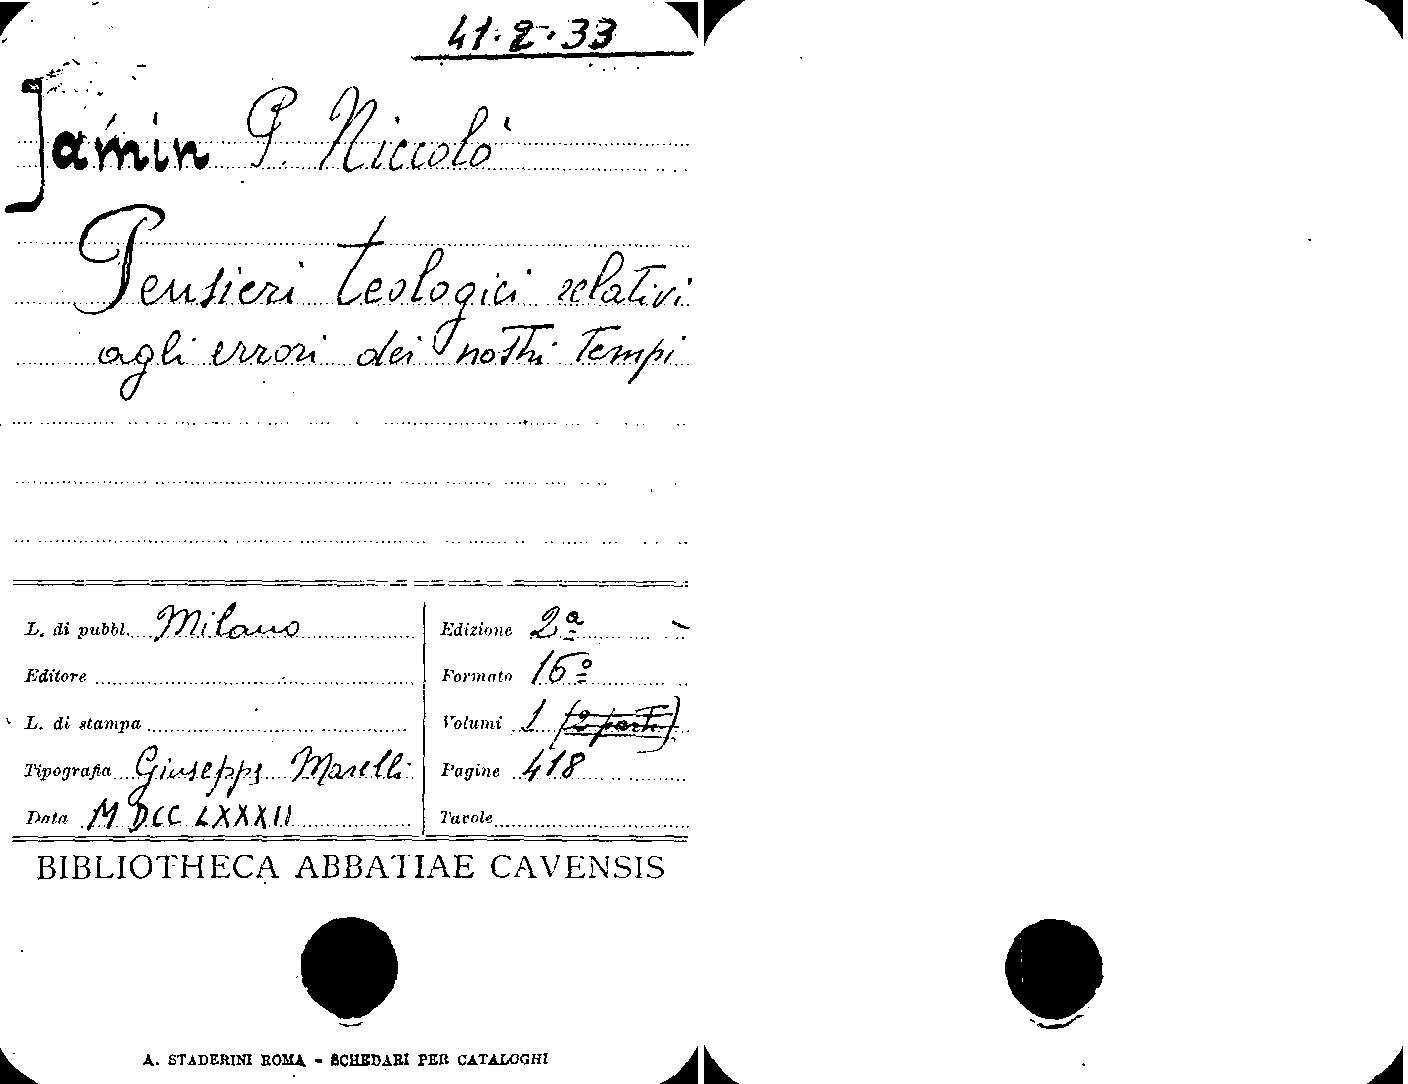 41-2-33
Jamin P. Niccolò
Pensieri teologici relativi
agli errori dei nostri tempi
L. di pubbl. Milano
Editore
L. di stampa
Tipografia Giuseppe Marelli
Data MDCCLXXXII
Edizione 2ª
Formato 16º
Volumi 1 (2 parti)
Pagine 418
Tavole
BIBLIOTHECA ABBATIAE CAVENSIS
A. STADERINI ROMA - SCHEDARI PER CATALOGHI